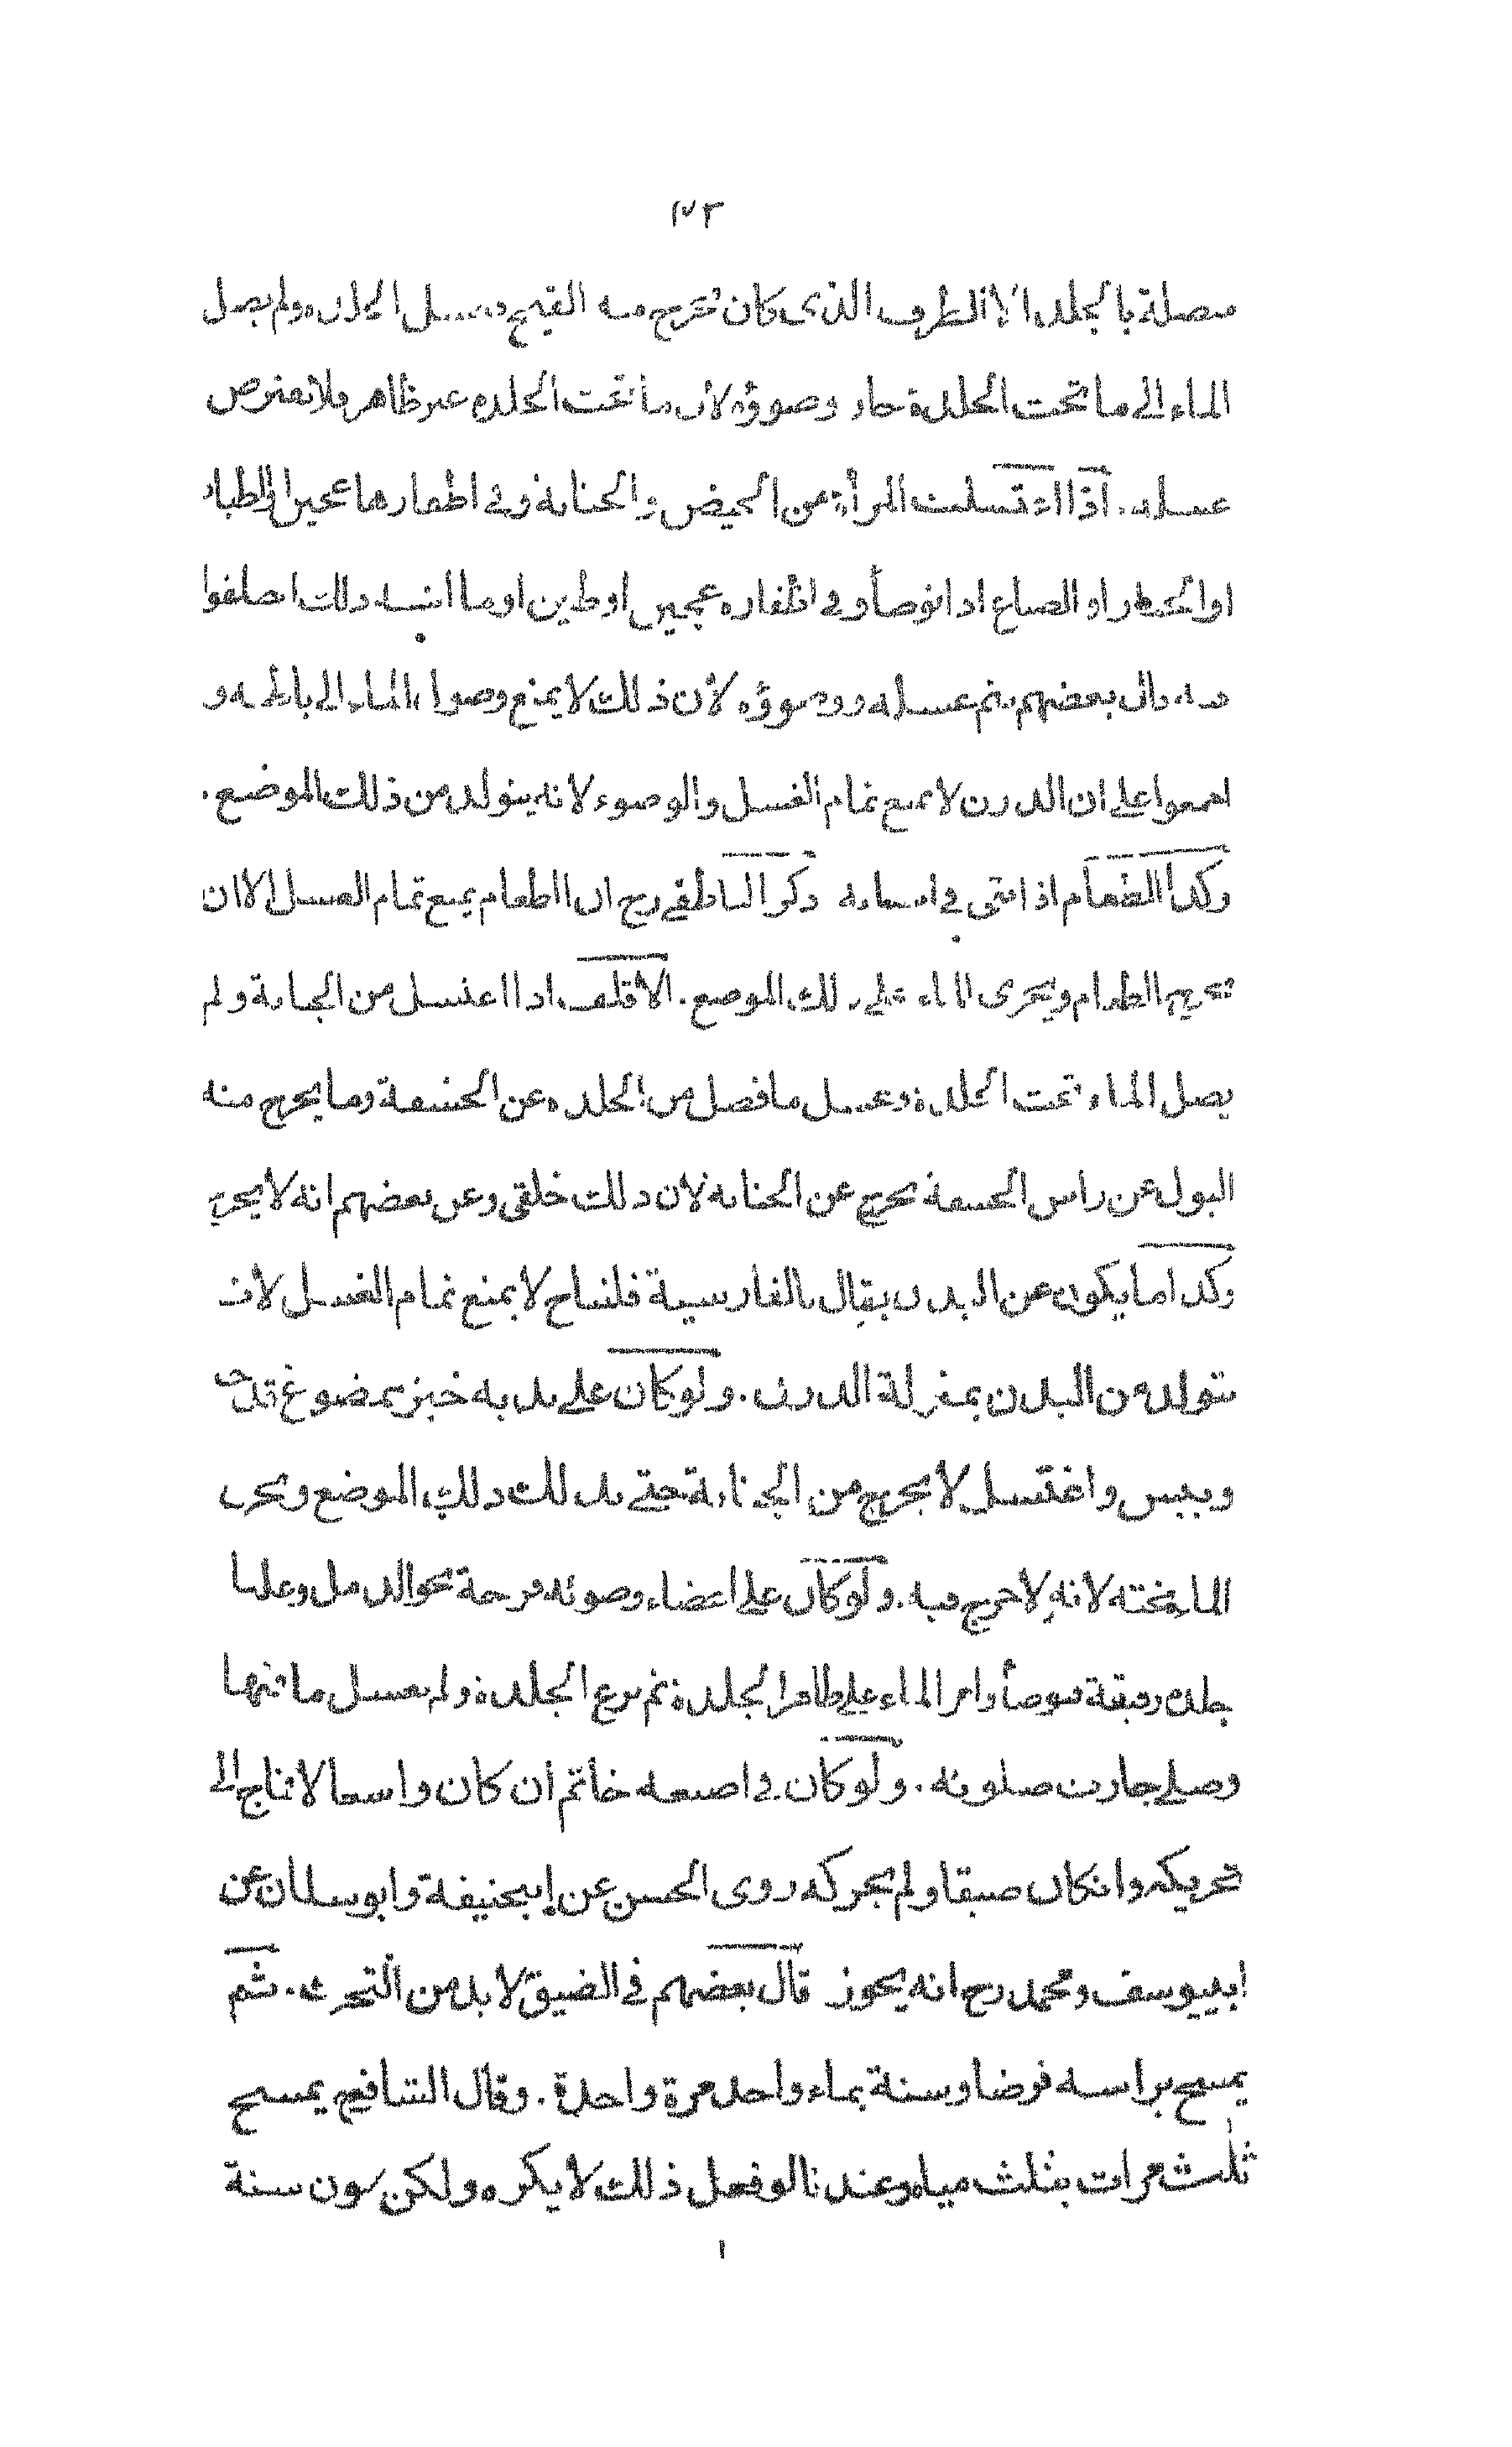 ١٧٣
متصلة بالجلد الا الطرف الذى كان تخرج منه القيح وغسل الجلدة ولم يصل
الماء الى ما تحت الجلدة جاز وضوؤه لان ما تحت الجلدة غير ظاهر فلا يفترض
غسله . اذا اغتسلت المرأة من الحيض والجنابة وفى اظفارها عجين او الطباخ
او او الصباغ اذا توضأ وفى اظفاره عجين او طين او ما اشبه ذلك اختلفوا
فيه قال بعضهم يتم غسله ووضوؤه لان ذلك لا يمنع وصول الماء الى باطنه و
اجمعوا على ان الدرن لا يمنع تمام الغسل والوضوء لانه يتولد من ذلك الموضع .
وكذا الطعام اذا بقى فى اسنانه ذكر الناطقى رح ان الطعام يمنع تمام الغسل الا ان
تخرج الطعام ويجرى الماء على ذلك الموضع . الاقلف اذا اغتسل من الجنابة ولم
يصل الماء تحت الجلدة وغسل ما فضل من الجلدة عن الحشفة وما يخرج منه
البول عن راس الحشفة يخرج عن الجنابة لان ذلك خلقى وعن بعضهم انه لا يجزيه
وكذا ما يكون عن البدن يقال بالفارسية لا يمنع تمام الغسل لانه
متولد من البدن بمنزلة الدرن . ولو كان على بدنه خبز ممضوغ قد جف
ويبس واغتسل لا يخرج من الجنابة حتى يدلك ذلك الموضع ويجرى
الماء تحته لانه لا حرج فيه . ولو كان على اعضاء وضوئه قرحة نحو الدمل وعليها
جلدة رقيقة فتوضأ وامر الماء على ظاهر الجلدة ثم نزع الجلدة ولم يغسل ما تحتها
وصلى جازت صلوته . ولو كان فى اصبعه خاتم ان كان واسعا لا تحتاج الى
تحريكه وان كان ضيقا ولم يحركه روى الحسن عن ابيحنيفة وابو سليمان عن
ابييوسف ومحمد رح انه يجوز قال بعضهم فى الضيق لا بد من التحرك . ثم
يمسح براسه فرضا وسنة بماء واحد مرة واحدة . وقال الشافعى يمسح
ثلث مرات بثلث مياه وعندنا لو فعل ذلك لا يكره ولكن يكون سنة
١